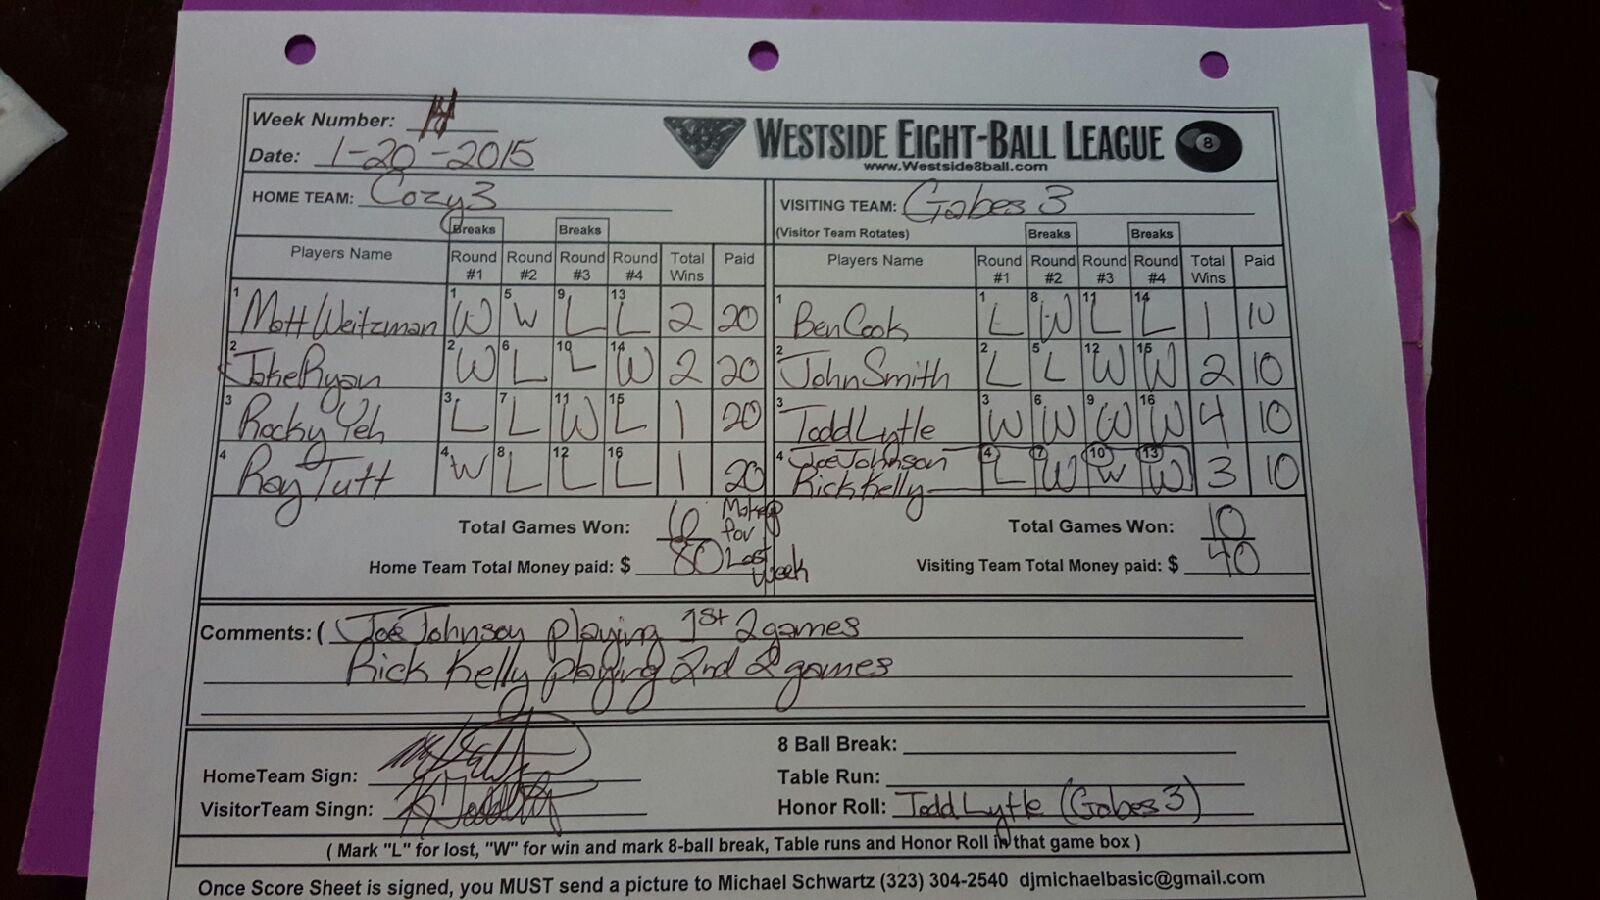 Week Number: 14
WESTSIDE EIGHT-BALL LEAGUE 8
www.Westside8ball.com
Date: 1-20-2015
HOME TEAM: Cozy 3
VISITING TEAM: Gabes 3
(Visitor Team Rotates)
Breaks Breaks Breaks Breaks
Players Name Round #1 Round #2 Round #3 Round #4 Total Wins Paid Players Name Round #1 Round #2 Round #3 Round #4 Total Wins Paid
1 Matt Weitzman 1 W 5 W 9 L 13 L 2 20 1 Ben Cook 1 L 8 W 11 L 14 L 1 10
2 Jake Ryan 2 W 6 L 10 L 14 W 2 20 2 John Smith 2 L 5 L 12 W 15 W 2 10
3 Rocky Yeh 3 L 7 L 11 W 15 L 1 20 3 Todd Lytle 3 W 6 W 9 W 16 W 4 10
4 Ray Tutt 4 W 8 L 12 L 16 L 1 20 4 Joe Johnson Rick Kelly 4 L 7 W 10 W 13 W 3 10
Total Games Won: 6 Total Games Won: 10
Home Team Total Money paid: $ 80 Makeup for Last Week Visiting Team Total Money paid: $ 40
Comments: ( Joe Johnson playing 1st 2 games
Rick Kelly playing 2nd 2 games
8 Ball Break:
HomeTeam Sign: Table Run:
VisitorTeam Singn: Honor Roll: Todd Lytle (Gabes 3)
( Mark "L" for lost, "W" for win and mark 8-ball break, Table runs and Honor Roll in that game box )
Once Score Sheet is signed, you MUST send a picture to Michael Schwartz (323) 304-2540 djmichaelbasic@gmail.com